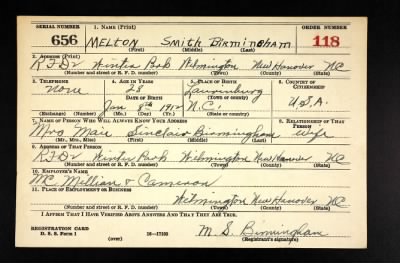 SERIAL NUMBER 1. NAME (Print) ORDER NUMBER
656 MELTON Smith Birmingham 118
(First) (Middle) (Last)
2. ADDRESS (Print)
RFD2 Winter Park Wilmington New Hanover NC
(Number and street or R. F. D. number) (Town) (County) (State)
3. TELEPHONE 4. AGE IN YEARS 5. PLACE OF BIRTH 6. COUNTRY OF CITIZENSHIP
None 28 Laurinburg
DATE OF BIRTH (Town or county)
Jan 8th 1912 N.C. U.S.A.
(Exchange) (Number) (Mo.) (Day) (Yr.) (State or country)
7. NAME OF PERSON WHO WILL ALWAYS KNOW YOUR ADDRESS 8. RELATIONSHIP OF THAT PERSON
Mrs Maie Sinclair Birmingham Wife
(Mr., Mrs., Miss) (First) (Middle) (Last)
9. ADDRESS OF THAT PERSON
RFD2 Winter Park Wilmington New Hanover NC
(Number and street or R. F. D. number) (Town) (County) (State)
10. EMPLOYER'S NAME
Mc Millian & Cameron
11. PLACE OF EMPLOYMENT OR BUSINESS
Wilmington New Hanover NC
(Number and street or R. F. D. number) (Town) (County) (State)
I AFFIRM THAT I HAVE VERIFIED ABOVE ANSWERS AND THAT THEY ARE TRUE.
REGISTRATION CARD
D. S. S. Form 1 (over) 16—17105 M. S. Birmingham
(Registrant's signature)